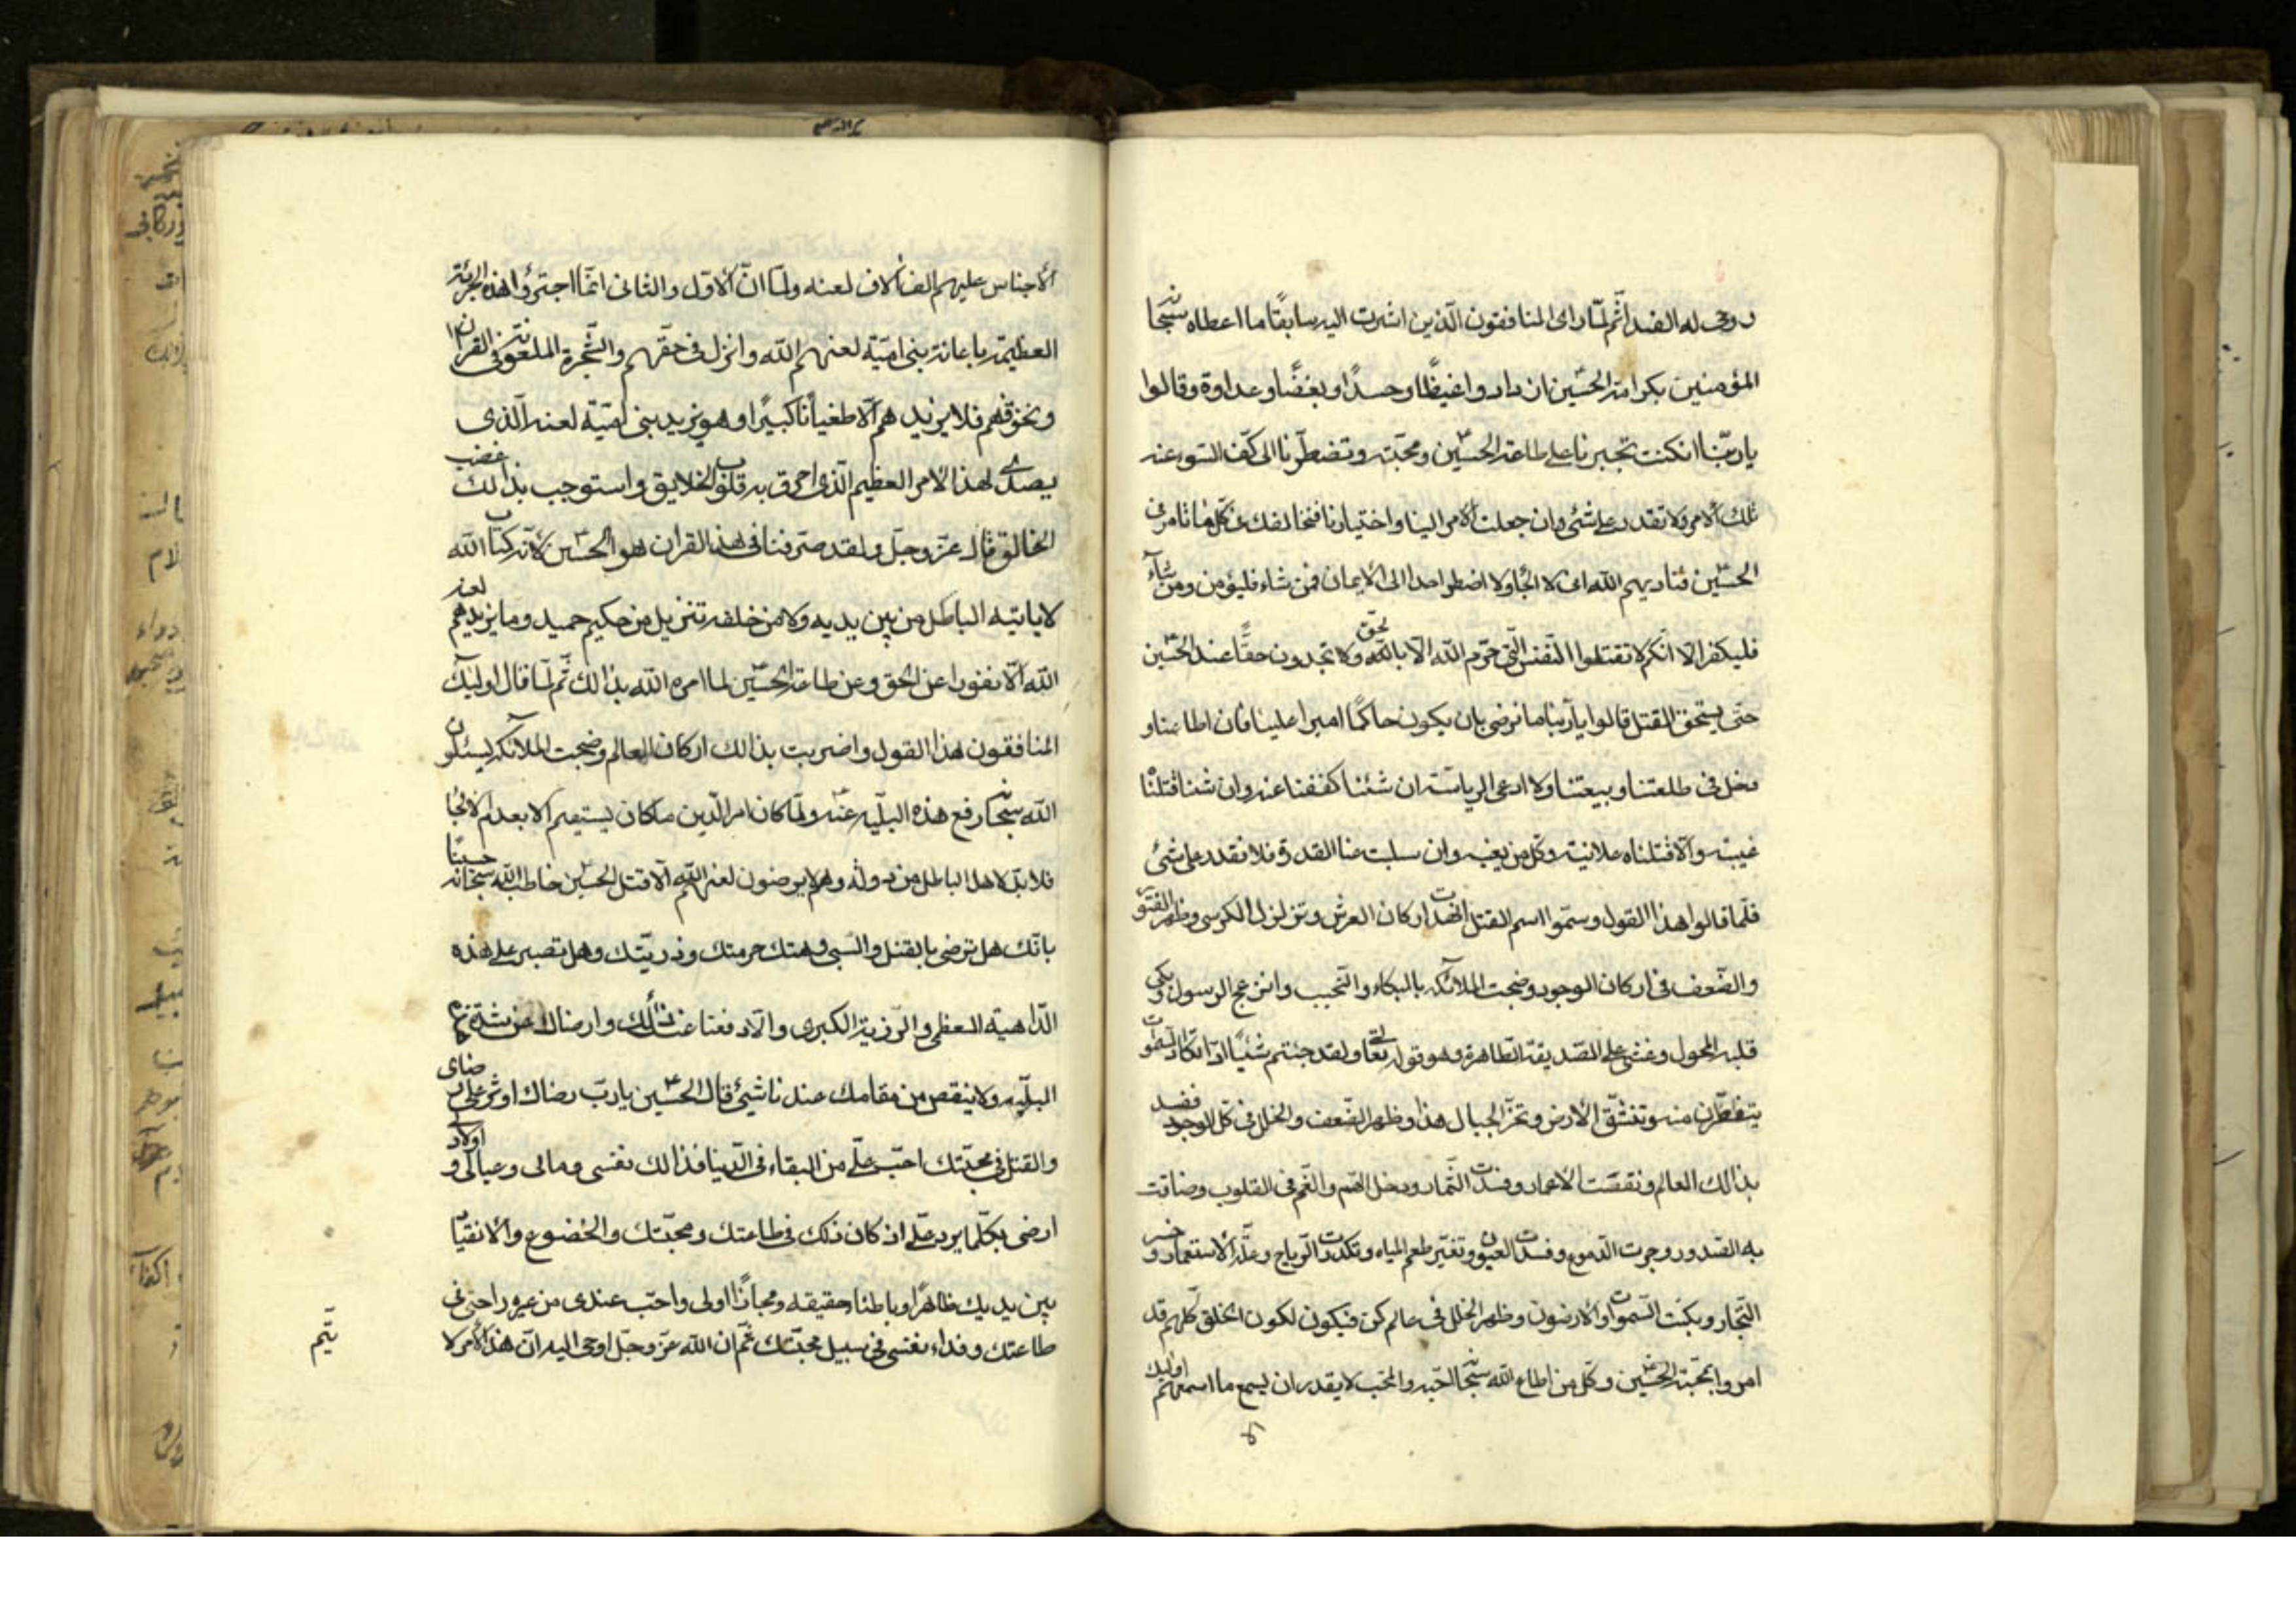 وروحي له الفداء ثم لما رأى المنافقون الذين اشرت اليه سابقًا ما اعطاه سبحانه
المؤمنين بكرامة الحسين ان دادوا غيظًا وحسدًا وبغضًا وعداوة وقالوا
يا ربنا ان كنت تجبرنا على طاعة الحسين ومحبته وتضطرنا الى كف السوء عنه
تلك الامر ولا تقدر على شئ وان جعلت الامر الينا واختيارنا فنخالفك في كل ما تامر في
الحسين فناديهم الله انى لا الجأ ولا اضطر احدا الى الايمان فمن شاء فليؤمن ومن شاء
فليكفر الا انكم لا تقتلوا النفس التي حرم الله الا بالحق ولا تجدون حقًا عند الحسين
حتى يستحق القتل قالوا يا ربنا ما نرضى بان يكون حاكمًا اميرا علينا فان اطاعنا و
دخل في طلعتنا وبيعتنا ولا ادعى الرياسة ان شئنا كففنا عنه وان شئنا قتلنا
غيبة والا قتلناه علانية وكل من يغيه وان سلبت منا القدرة فلا نقدر على شئ
فلما قالوا هذا القول وسموا اسم القتل انهدت اركان العرش وتزلزل الكرسى وظهر الفتور
والضعف فى اركان الوجود وضجت الملائكه بالبكاء والنحيب وانزعج الرسول وبكى
قلبه المحول وغشى على الصديقة الطاهرة وهو قوله تعالى ولقد جئتم شيئًا ادًا تكاد السموات
يتفطرن منه وتنشق الارض وتخر الجبال هذا وظهر الضعف والخلل في كل الوجود ففسد
بذالك العالم ونقصت الاعمار وفسدت الثمار ودخل الهم والغم فى القلوب وضاقت
به الصدور وجرت الدموع وفسدت العيون وتغير طعم المياه وتكدرت الرياح وعلة الاستعمار وخسر
التجار وبكت السموات والارضون وظهر الخلل فى عالم كن فيكون لكون الخلق كلهم قد
امروا بمحبة الحسين وكل من اطاع الله سبحانه احبه والمحب لا يقدر ان يسمع ما اسمعهم اولئك
لا
الأجناس عليهم الف الاف لعنه ولما ان الاول والثانى انما اجترؤا هذه الجرئة
العظيمة باعانة بنى امية لعنهم الله وانزل فى حقهم والشجرة الملعونة فى القرآن
ونخوفهم فلا يزيدهم الا طغيانًا كبيرًا وهو يزيد بنى امية لعنه الذى
يصدى لهذا الامر العظيم الذى احرق به قلوب الخلايق واستوجب بذالك غضب
الخالق قال عز وجل ولقد صرفنا فى هذا القران هو الحسين لانه كتاب الله
لا ياتيه الباطل من بين يديه ولا من خلفه تنزيل من حكيم حميد وما يزيدهم لعنه
الله الا نفورا عن الحق وعن طاعة الحسين لما امره الله بذالك ثم لما قال اولئك
المنافقون هذا القول واضربت بذالك اركان العالم وضجت الملائكه ليسئلون
الله سبحانه رفع هذه البليه عنه ولما كان امر الدين ما كان يستقيم الا بعدم الالجا
فلا بد لاهل الباطل من دولة وهم لا يرضون لعنهم الله الا قتل الحسين خاطب الله سبحانه حسينًا
بانك هل ترضى بالقتل والسبى وهتك حرمتك وذريتك وهل تصبر على هذه
الداهية العظمى والرزية الكبرى والا دفعنا عنك ذالك وارضناك عن شدة هم
البليه ولا ينقص من مقامك عندنا شيئ قال الحسين يا رب رضاك اوثر على رضاى
والقتل في محبتك احب على من البقاء فى الدينا فذالك نفسى ومالى وعيالى و اولاد
ارضى بكلما يرد على اذ كان ذلك فى طاعتك ومحبتك والخضوع والانقيا
بين يديك ظاهرًا وباطنا وحقيقه ومجازًا اولى واحب عندى من غيره راحتى فى
طاعتك وفداء نفسى فى سبيل محبتك ثم ان الله عز وجل اوحى اليه ان هذا الامر لا
يتم